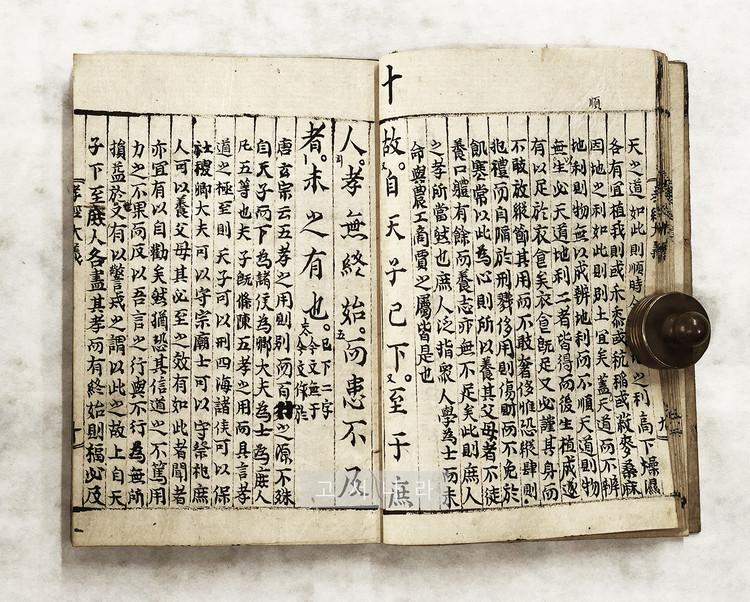 順
天之道如此則順時令之利高下燥濕
各有宜植我則或禾黍或秔稻或菽麥桑麻
因地之利如此則別土宜矣蓋天道而不辨
地利則物無以成辨地利而不順天道則物
無以生必天道地利二者皆得而後生植成遂
有以足於衣食矣衣食旣足又必謹其身而
不敢放縱節其用而不敢奢侈惟恐縱肆則
犯禮而自陷於刑戮侈用則傷財而不免於
飢寒常以此為心則所以養其父母者不徒
養口體有餘而養志亦無不足矣此則庶人
之孝所當然也庶人泛指衆人學為士而未
命與農工商賈之屬皆是也
十
故。自天子已下。至于庶
人。孝無終始。而患不及
者。未之有也。
已下二字
今文無于
今文作於
唐玄宗云五孝之用則別而百行之源不殊
自天子而下為諸侯為卿大夫為士為庶人
凡五等也夫子旣條陳五孝之用而具言孝
道之極至則天子可以刑四海諸侯可以保
社稷卿大夫可以守宗廟士可以守祭祀庶
人可以養父母其必至之效有如此者聞者
亦宜有以自勸矣然猶恐其信道之不篤用
力之不果而及以吾言之行與不行為無所
損益於又有以警戒之謂以此之故上自天
子下至庶人各盡其孝而有終始則禍必及
孝經大義